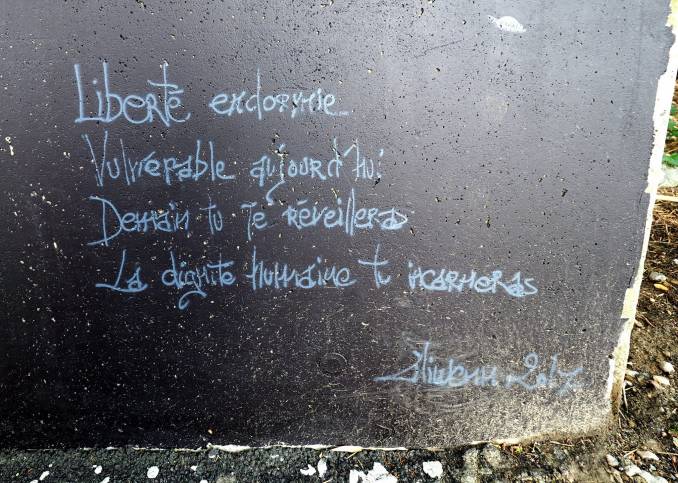 Liberté endormie
Vulnérable aujourd'hui
Demain tu te réveilleras
La dignité humaine tu incarneras
2017